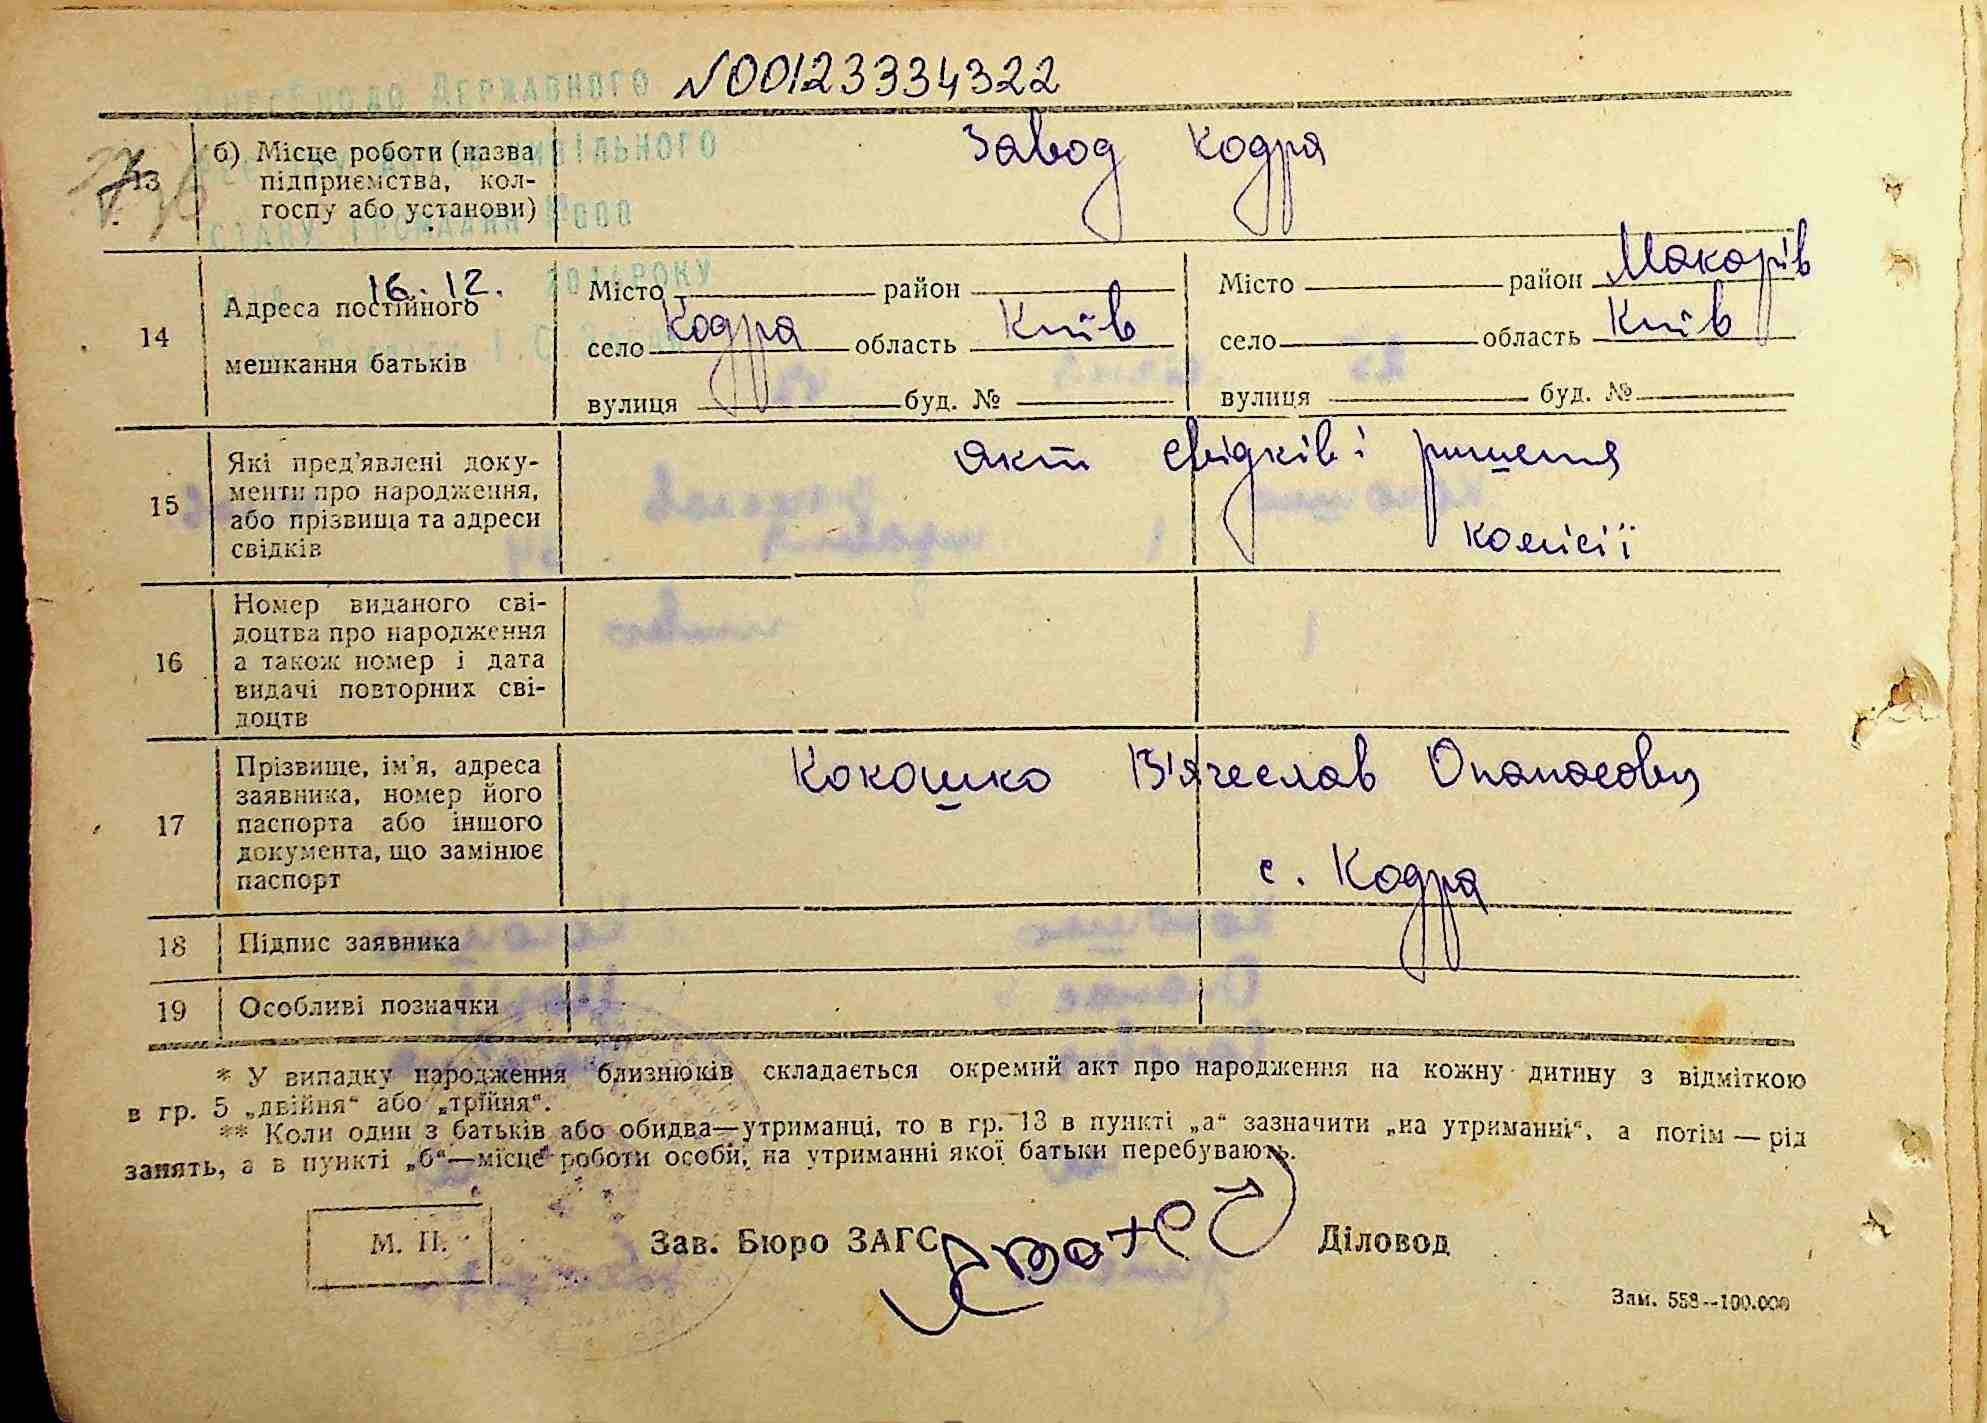 ДЕРЖАВНОГО N00123334322
13 б) Місце роботи (назва підприємства, колгоспу або установи) Завод Кодра
СТАНУ ГРОМАДЯН
16.12. РОКУ
14 Адреса постійного мешкання батьків
Місто район Місто район Макарів
село Кодра область Київ село область Київ
вулиця буд. № вулиця буд. №
15 Які пред'явлені доку-
менти про народження,
або прізвища та адреси
свідків
акт свідків і ришення
комісії
16 Номер виданого сві-
доцтва про народження
а також номер і дата
видачі повторних сві-
доцтв
17 Прізвище, ім'я, адреса
заявника, номер його
паспорта або іншого
документа, що замінює
паспорт
Кокошко В'ячеслав Опанасович
с. Кодра
18 Підпис заявника
19 Особливі позначки
* У випадку народження близнюків складається окремий акт про народження на кожну дитину з відміткою
в гр. 5 „двійня“ або „трійня“.
** Коли один з батьків або обидва—утриманці, то в гр. 13 в пункті „а“ зазначити „на утриманні“, а потім — рід
занять, а в пункті „б“—місце роботи особи, на утриманні якої батьки перебувають.
М. П. Зав. Бюро ЗАГС Діловод
Зам. 558--100.000